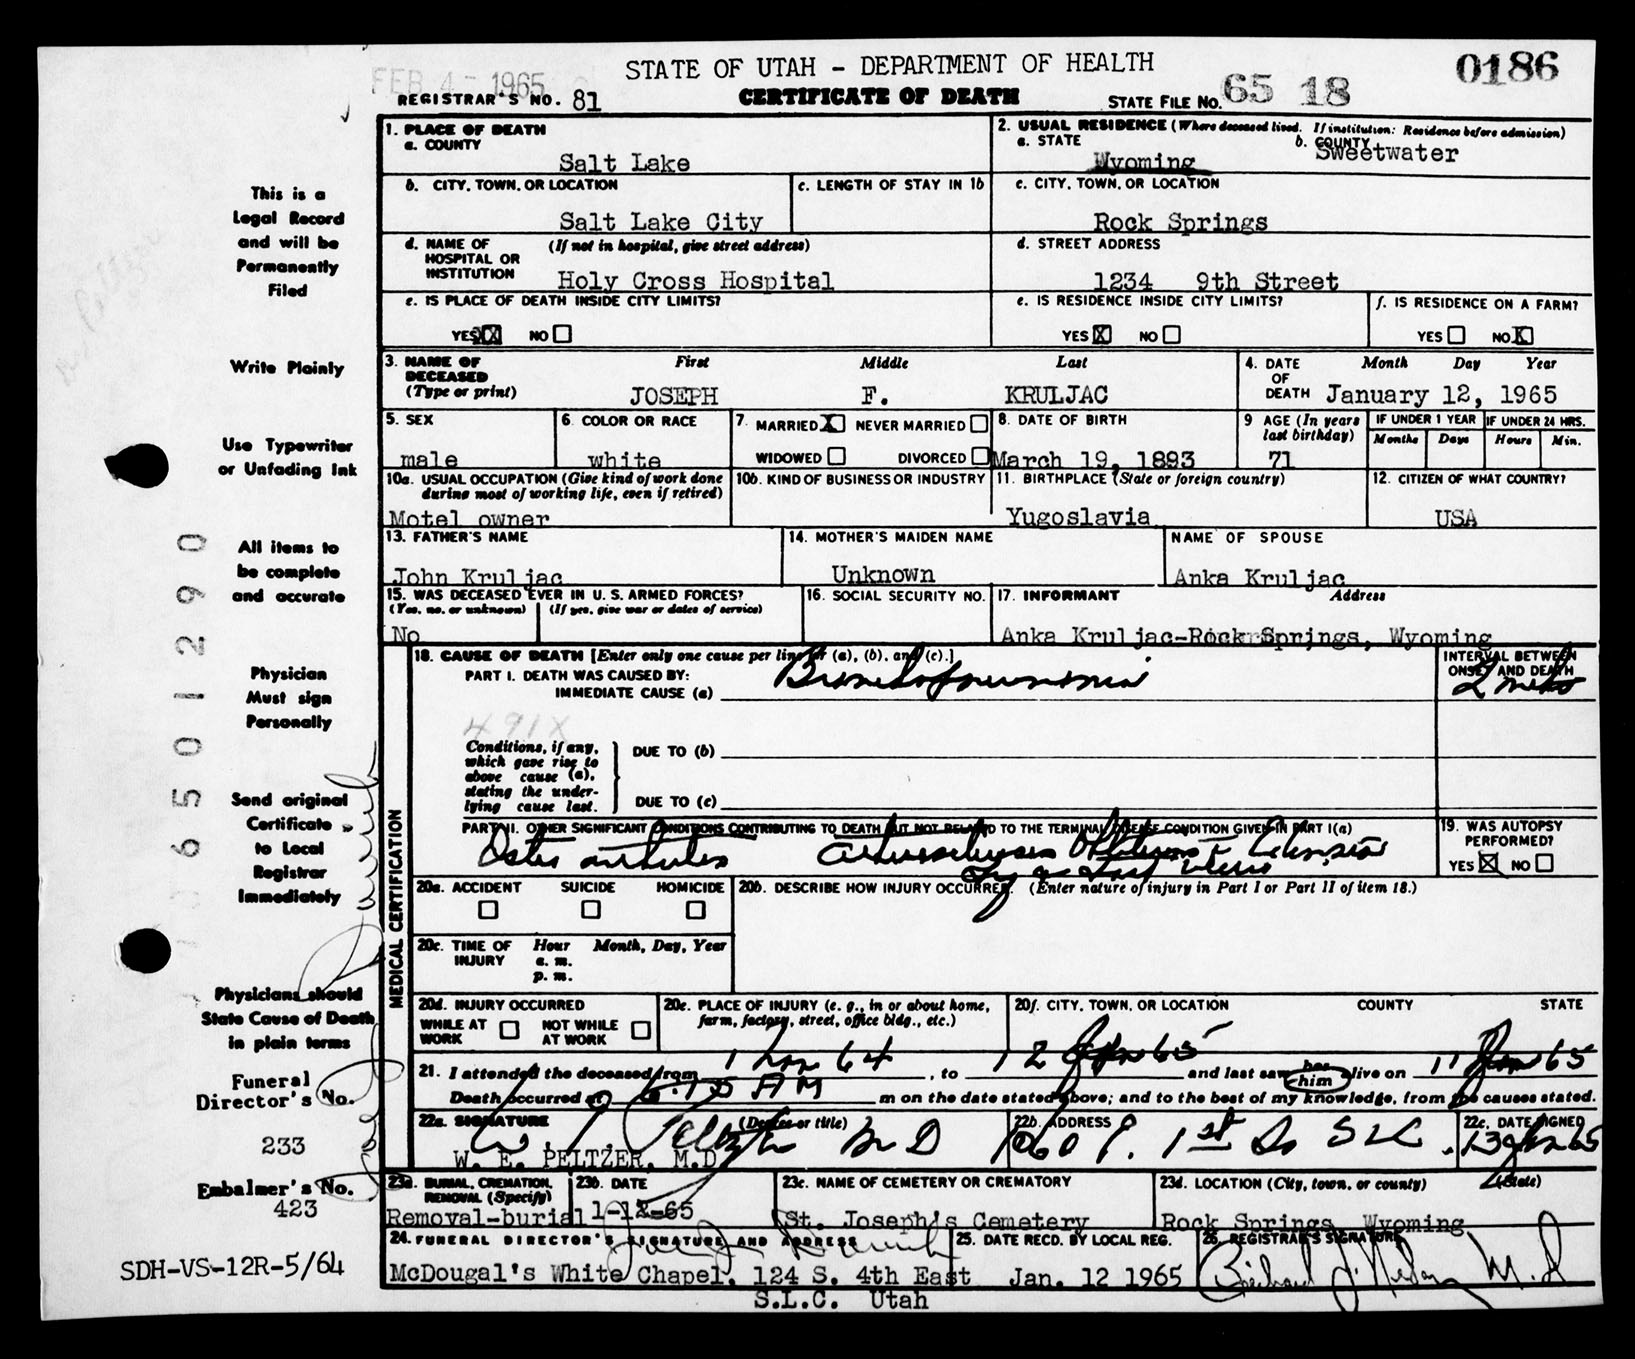 STATE OF UTAH - DEPARTMENT OF HEALTH
0186
FEB 4 - 1965
REGISTRAR'S NO. 81
CERTIFICATE OF DEATH
STATE FILE NO. 65 18
1. PLACE OF DEATH
a. COUNTY
Salt Lake
2. USUAL RESIDENCE (Where deceased lived. If institution: Residence before admission)
a. STATE
Wyoming
b. COUNTY
Sweetwater
b. CITY, TOWN, OR LOCATION
Salt Lake City
c. LENGTH OF STAY IN 1b
c. CITY, TOWN, OR LOCATION
Rock Springs
d. NAME OF HOSPITAL OR INSTITUTION
(If not in hospital, give street address)
Holy Cross Hospital
d. STREET ADDRESS
1234 9th Street
e. IS PLACE OF DEATH INSIDE CITY LIMITS?
YES XX NO
e. IS RESIDENCE INSIDE CITY LIMITS?
YES X NO
f. IS RESIDENCE ON A FARM?
YES NO X
3. NAME OF DECEASED
(Type or print)
First Middle Last
JOSEPH F. KRULJAC
4. DATE OF DEATH
Month Day Year
January 12, 1965
5. SEX
male
6. COLOR OR RACE
white
7. MARRIED X NEVER MARRIED
WIDOWED DIVORCED
8. DATE OF BIRTH
March 19, 1893
9 AGE (In years last birthday)
71
IF UNDER 1 YEAR
Months Days
IF UNDER 24 HRS.
Hours Min.
10a. USUAL OCCUPATION (Give kind of work done during most of working life, even if retired)
Motel owner
10b. KIND OF BUSINESS OR INDUSTRY
11. BIRTHPLACE (State or foreign country)
Yugoslavia
12. CITIZEN OF WHAT COUNTRY?
USA
13. FATHER'S NAME
John Kruljac
14. MOTHER'S MAIDEN NAME
Unknown
NAME OF SPOUSE
Anka Kruljac
15. WAS DECEASED EVER IN U. S. ARMED FORCES?
(Yes, no, or unknown) (If yes, give war or dates of service)
No
16. SOCIAL SECURITY NO.
17. INFORMANT Address
Anka Kruljac-Rock Springs, Wyoming
MEDICAL CERTIFICATION
18. CAUSE OF DEATH [Enter only one cause per line for (a), (b), and (c).]
PART I. DEATH WAS CAUSED BY:
IMMEDIATE CAUSE (a)
Bronchopneumonia
INTERVAL BETWEEN ONSET AND DEATH
491X
Conditions, if any, which gave rise to above cause (a), stating the underlying cause last.
DUE TO (b)
DUE TO (c)
PART II. OTHER SIGNIFICANT CONDITIONS CONTRIBUTING TO DEATH BUT NOT RELATED TO THE TERMINAL DISEASE CONDITION GIVEN IN PART I(a)
19. WAS AUTOPSY PERFORMED?
YES X NO
20a. ACCIDENT SUICIDE HOMICIDE
20b. DESCRIBE HOW INJURY OCCURRED. (Enter nature of injury in Part I or Part II of item 18.)
20c. TIME OF INJURY
Hour Month, Day, Year
a. m.
p. m.
20d. INJURY OCCURRED
WHILE AT WORK NOT WHILE AT WORK
20e. PLACE OF INJURY (e. g., in or about home, farm, factory, street, office bldg., etc.)
20f. CITY, TOWN, OR LOCATION COUNTY STATE
21. I attended the deceased from 1 Jan 64, to 12 Jan 65 and last saw her him alive on 11 Jan 65
Death occurred at AM m on the date stated above; and to the best of my knowledge, from the causes stated.
22a. SIGNATURE (Degree or title)
W E Peltzer M D
W. E. PELTZER, M.D
22b. ADDRESS
1060 E. 1st So SLC
22c. DATE SIGNED
13 Jan 65
23a. BURIAL, CREMATION, REMOVAL (Specify)
Removal-burial
23b. DATE
1-12-65
23c. NAME OF CEMETERY OR CREMATORY
St. Joseph's Cemetery
23d. LOCATION (City, town, or county) (State)
Rock Springs Wyoming
24. FUNERAL DIRECTOR'S SIGNATURE AND ADDRESS
McDougal's White Chapel, 124 S. 4th East
S.L.C. Utah
25. DATE RECD. BY LOCAL REG.
Jan. 12 1965
26. REGISTRAR'S SIGNATURE
M. D
This is a
Legal Record
and will be
Permanently
Filed
Write Plainly
Use Typewriter
or Unfading Ink
All items to
be complete
and accurate
Physician
Must sign
Personally
Send original
Certificate
to Local
Registrar
Immediately
Physicians should
State Cause of Death
in plain terms
Funeral
Director's No.
233
Embalmer's No.
423
SDH-VS-12R-5/64